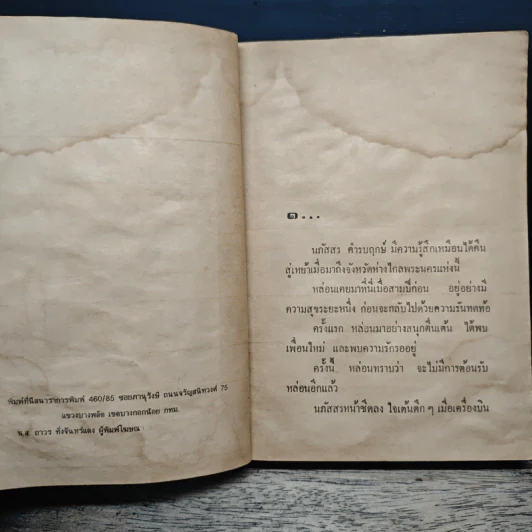 พิมพ์ที่นีลนาราการพิมพ์ 460/85 ซอยภาณุรังษี ถนนจรัญสนิทวงศ์ 75
แขวงบางพลัด เขตบางกอกน้อย กทม.
น.ส ถาวร ผู้พิมพ์โฆษณา
๑...
นภัสสร คำรบฤกษ์ มีความรู้สึกเหมือนได้คืน
สู่เหย้าเมื่อมาถึงจังหวัดห่างไกลพระนครแห่งนี้
หล่อนเคยมาที่นี่เมื่อสามปีก่อน อยู่อย่างมี
ความสุขระยะหนึ่ง ก่อนจะกลับไปด้วยความรันทดท้อ
ครั้งแรก หล่อนมาอย่างสนุกตื่นเต้น ได้พบ
เพื่อนใหม่ และพบความรักรออยู่
ครั้งนี้ หล่อนทราบว่า จะไม่มีการต้อนรับ
หล่อนอีกแล้ว
นภัสสรหน้าซีดลง ใจเต้นตึก ๆ เมื่อเครื่องบิน